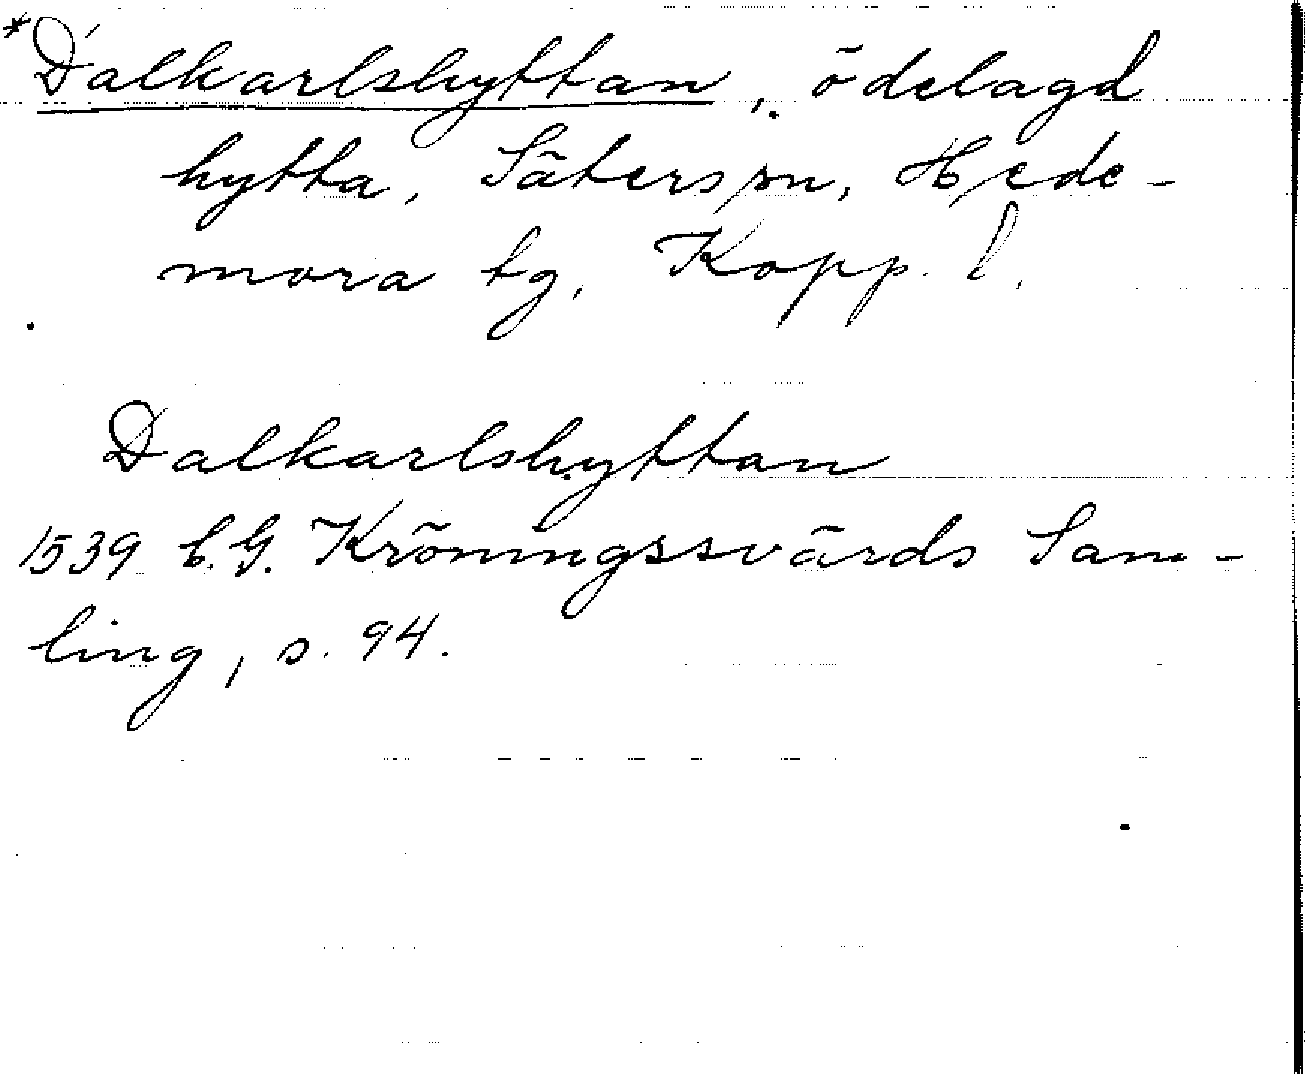 *Dalkarlshyttan, ödelagd
hytta, Säters sn, Hede-
mora tg, Kopp. l.
Dalkarlshyttan
1539 C.G. Kröningssvärds Sam-
ling, s. 94.